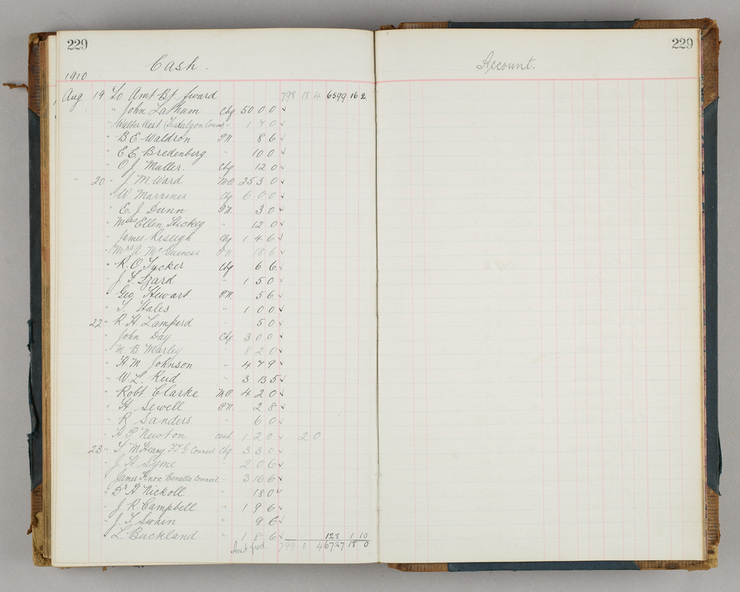 229
Cash.
1910
Aug 19 To Amt Bt forward 798 18 4 6599 16 2
" John Latham Chq 50 0 0
" Walter West 1 7 0
" B. E. Waldron P.N. 8 6
" E. E. Bredenberg " 10 0
" O. J. Muller. Chq 12 0
20 " J. M. Ward M.O. 25 3 0
" W. Marriner Chq 6 0 0
" E. J. Dunn P.N. 3 0
" Mrs Ellen Hickey " 12 0
" James Chq 1 4 6
" Mrs A. Mc P.N. 18 6
" R. O. Tucker Chq 6 6
" J. T. 1 5 0
" Geo Stewart P.N. 5 6
" T. Hales " 1 0 0
22 " R. H. Lampard 5 0
" John Day Chq 3 0 0
" M. B. Marley 8 2 0
" H. M. Johnson " 4 7 9
" W. L. Reid " 3 13 5
" Robt Clarke M.O. 4 2 0
" H. Sewell P.N. 2 8
" R. Sanders " 6 0
" A. P. Newton cash 1 2 0 2 0
23 " T. Council Chq 3 3 0
" J. H. Syme " 2 0 6
" James Knox Benalla Council " 3 10 6
" Dr A. Nickoll " 18 0
" J. R. Campbell " 1 9 6
" J. T. Swain " 9 6
" L. Buckland " 1 8 6 128 1 10
Amt fwd. 799 0 4 6727 18 0
229
Account.